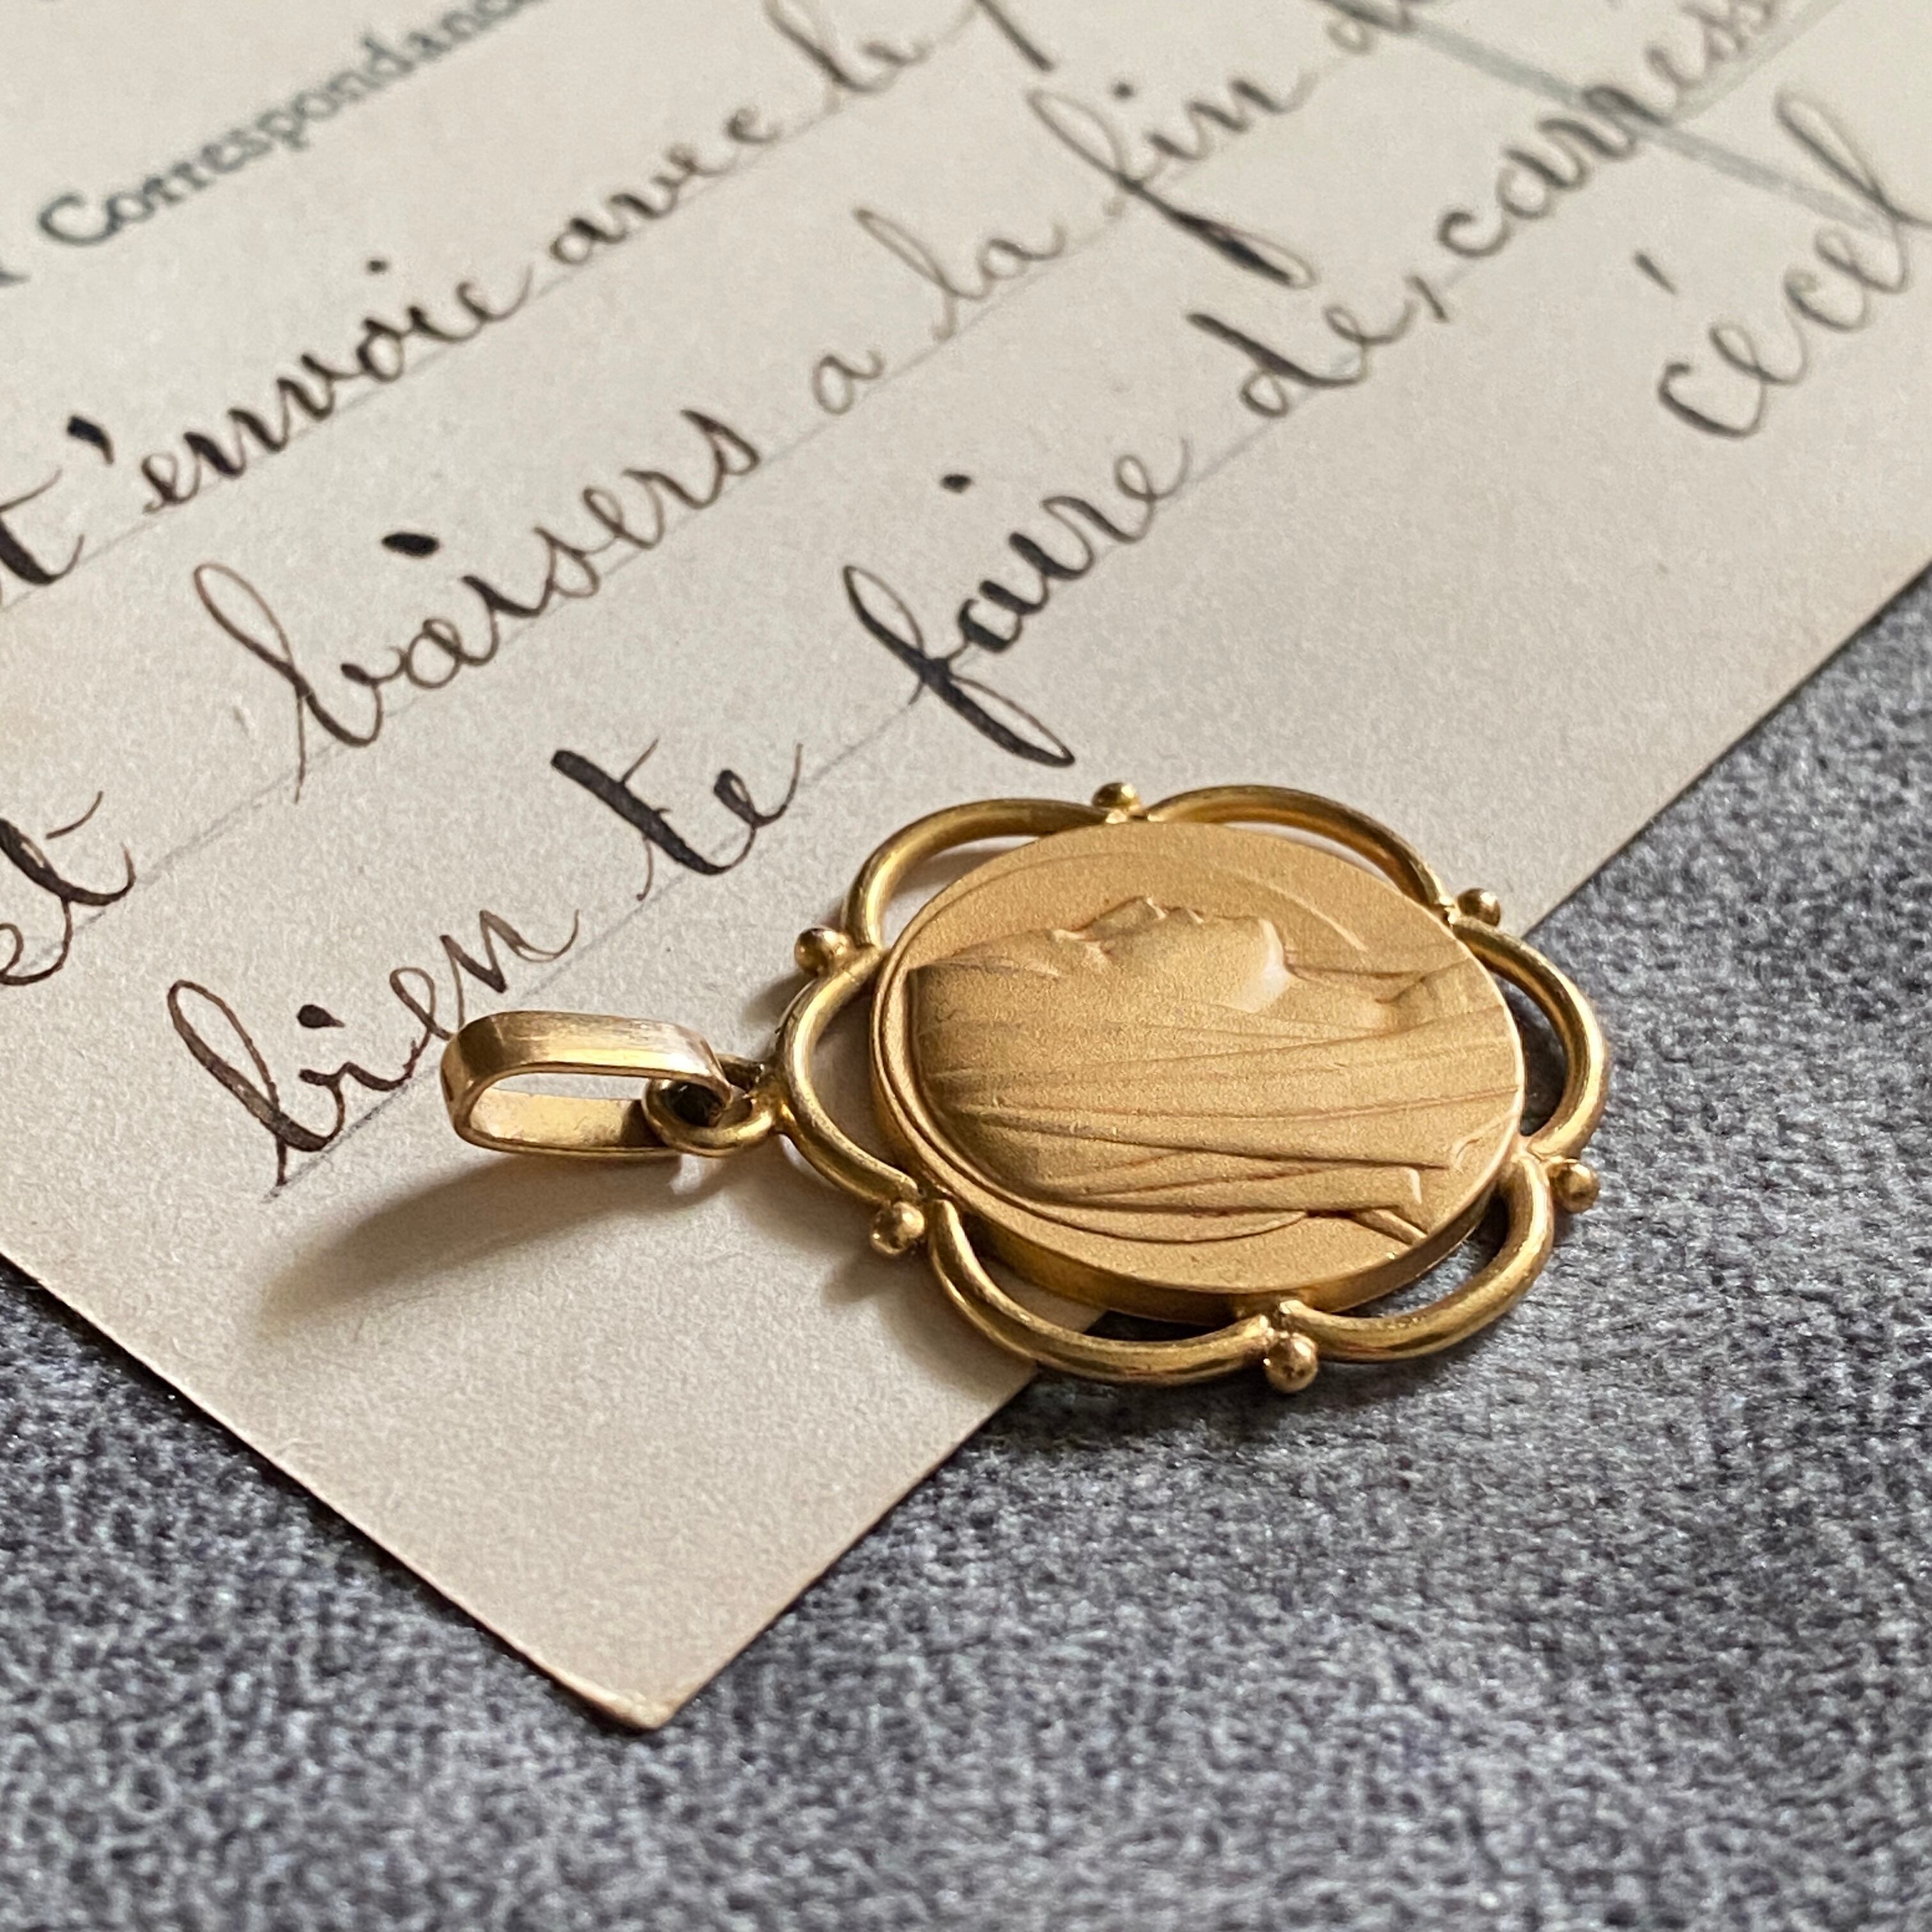 Correspondance
t'envoie avec le
et baisers a la fin
bien te faire des caress
cécel